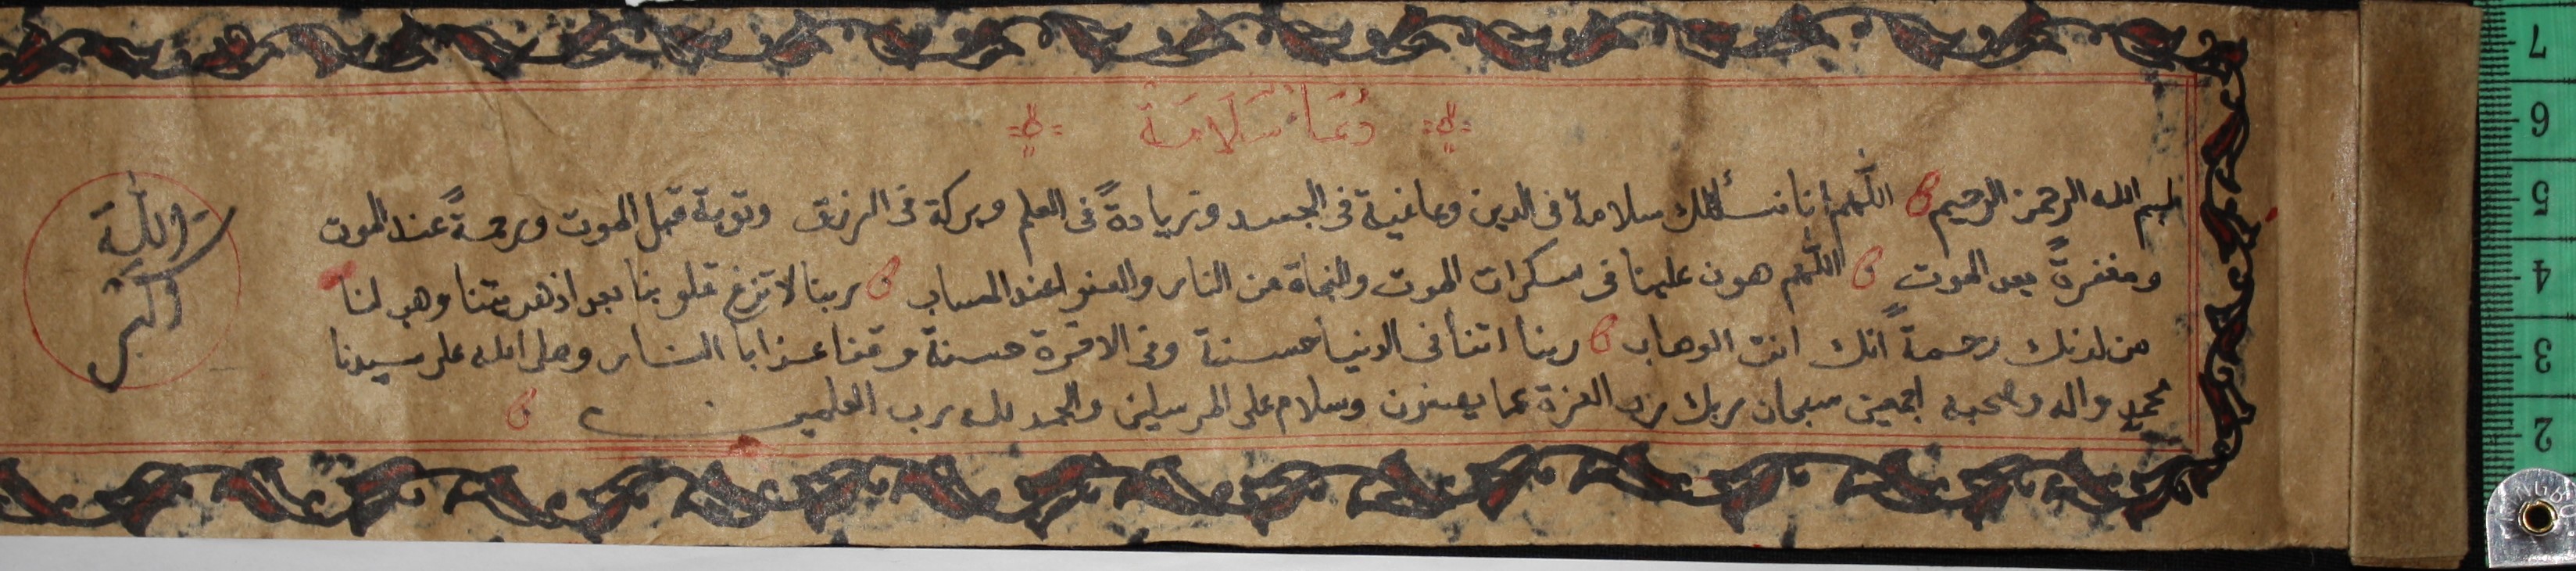 دُعَاءْ سَلَامَةْ
بسم الله الرحمن الرحيم اللّٰهم انا نسألك سلامة فى الدين وعافية فى الجسد وزيادةً فى العلم وبركة فى الرزق وتوبة قبل الموت ورحمةً عند الموت
ومغفرةً بعد الموت اللّٰهم هون علينا فى سكرات الموت والنجاة من النار والعفو عند الحساب ربنا لا تزغ قلوبنا بعد اذهديتنا وهب لنا
من لدنك رحمةً انك انت الوهاب ربنا اتنا فى الدنيا حسنة وفى الاخرة حسنة وقنا عذابا النار وصلى الله على سيدنا
محمد واله وصحبه اجمعين سبحان ربك رب العزة عما يصفون وسلام على المرسلين والحمد لله رب العلمين
اللّٰه
اكبر
7
6
5
4
3
2